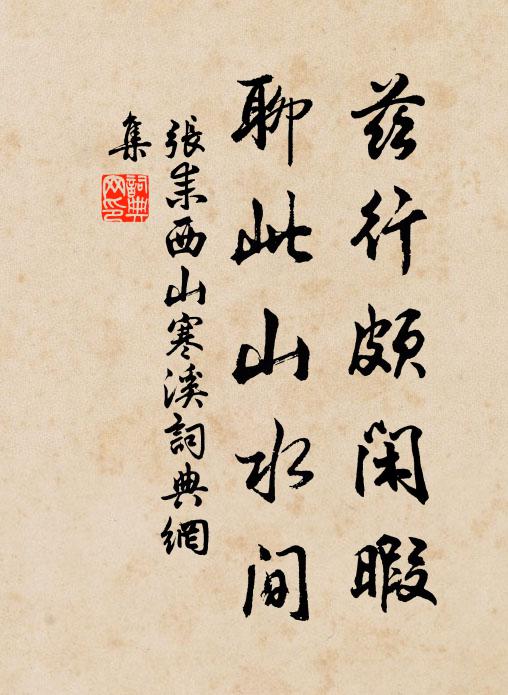 茲行頗閑暇
聊此山水间
張耒西山寒溪詞典網
集
詞典
网印